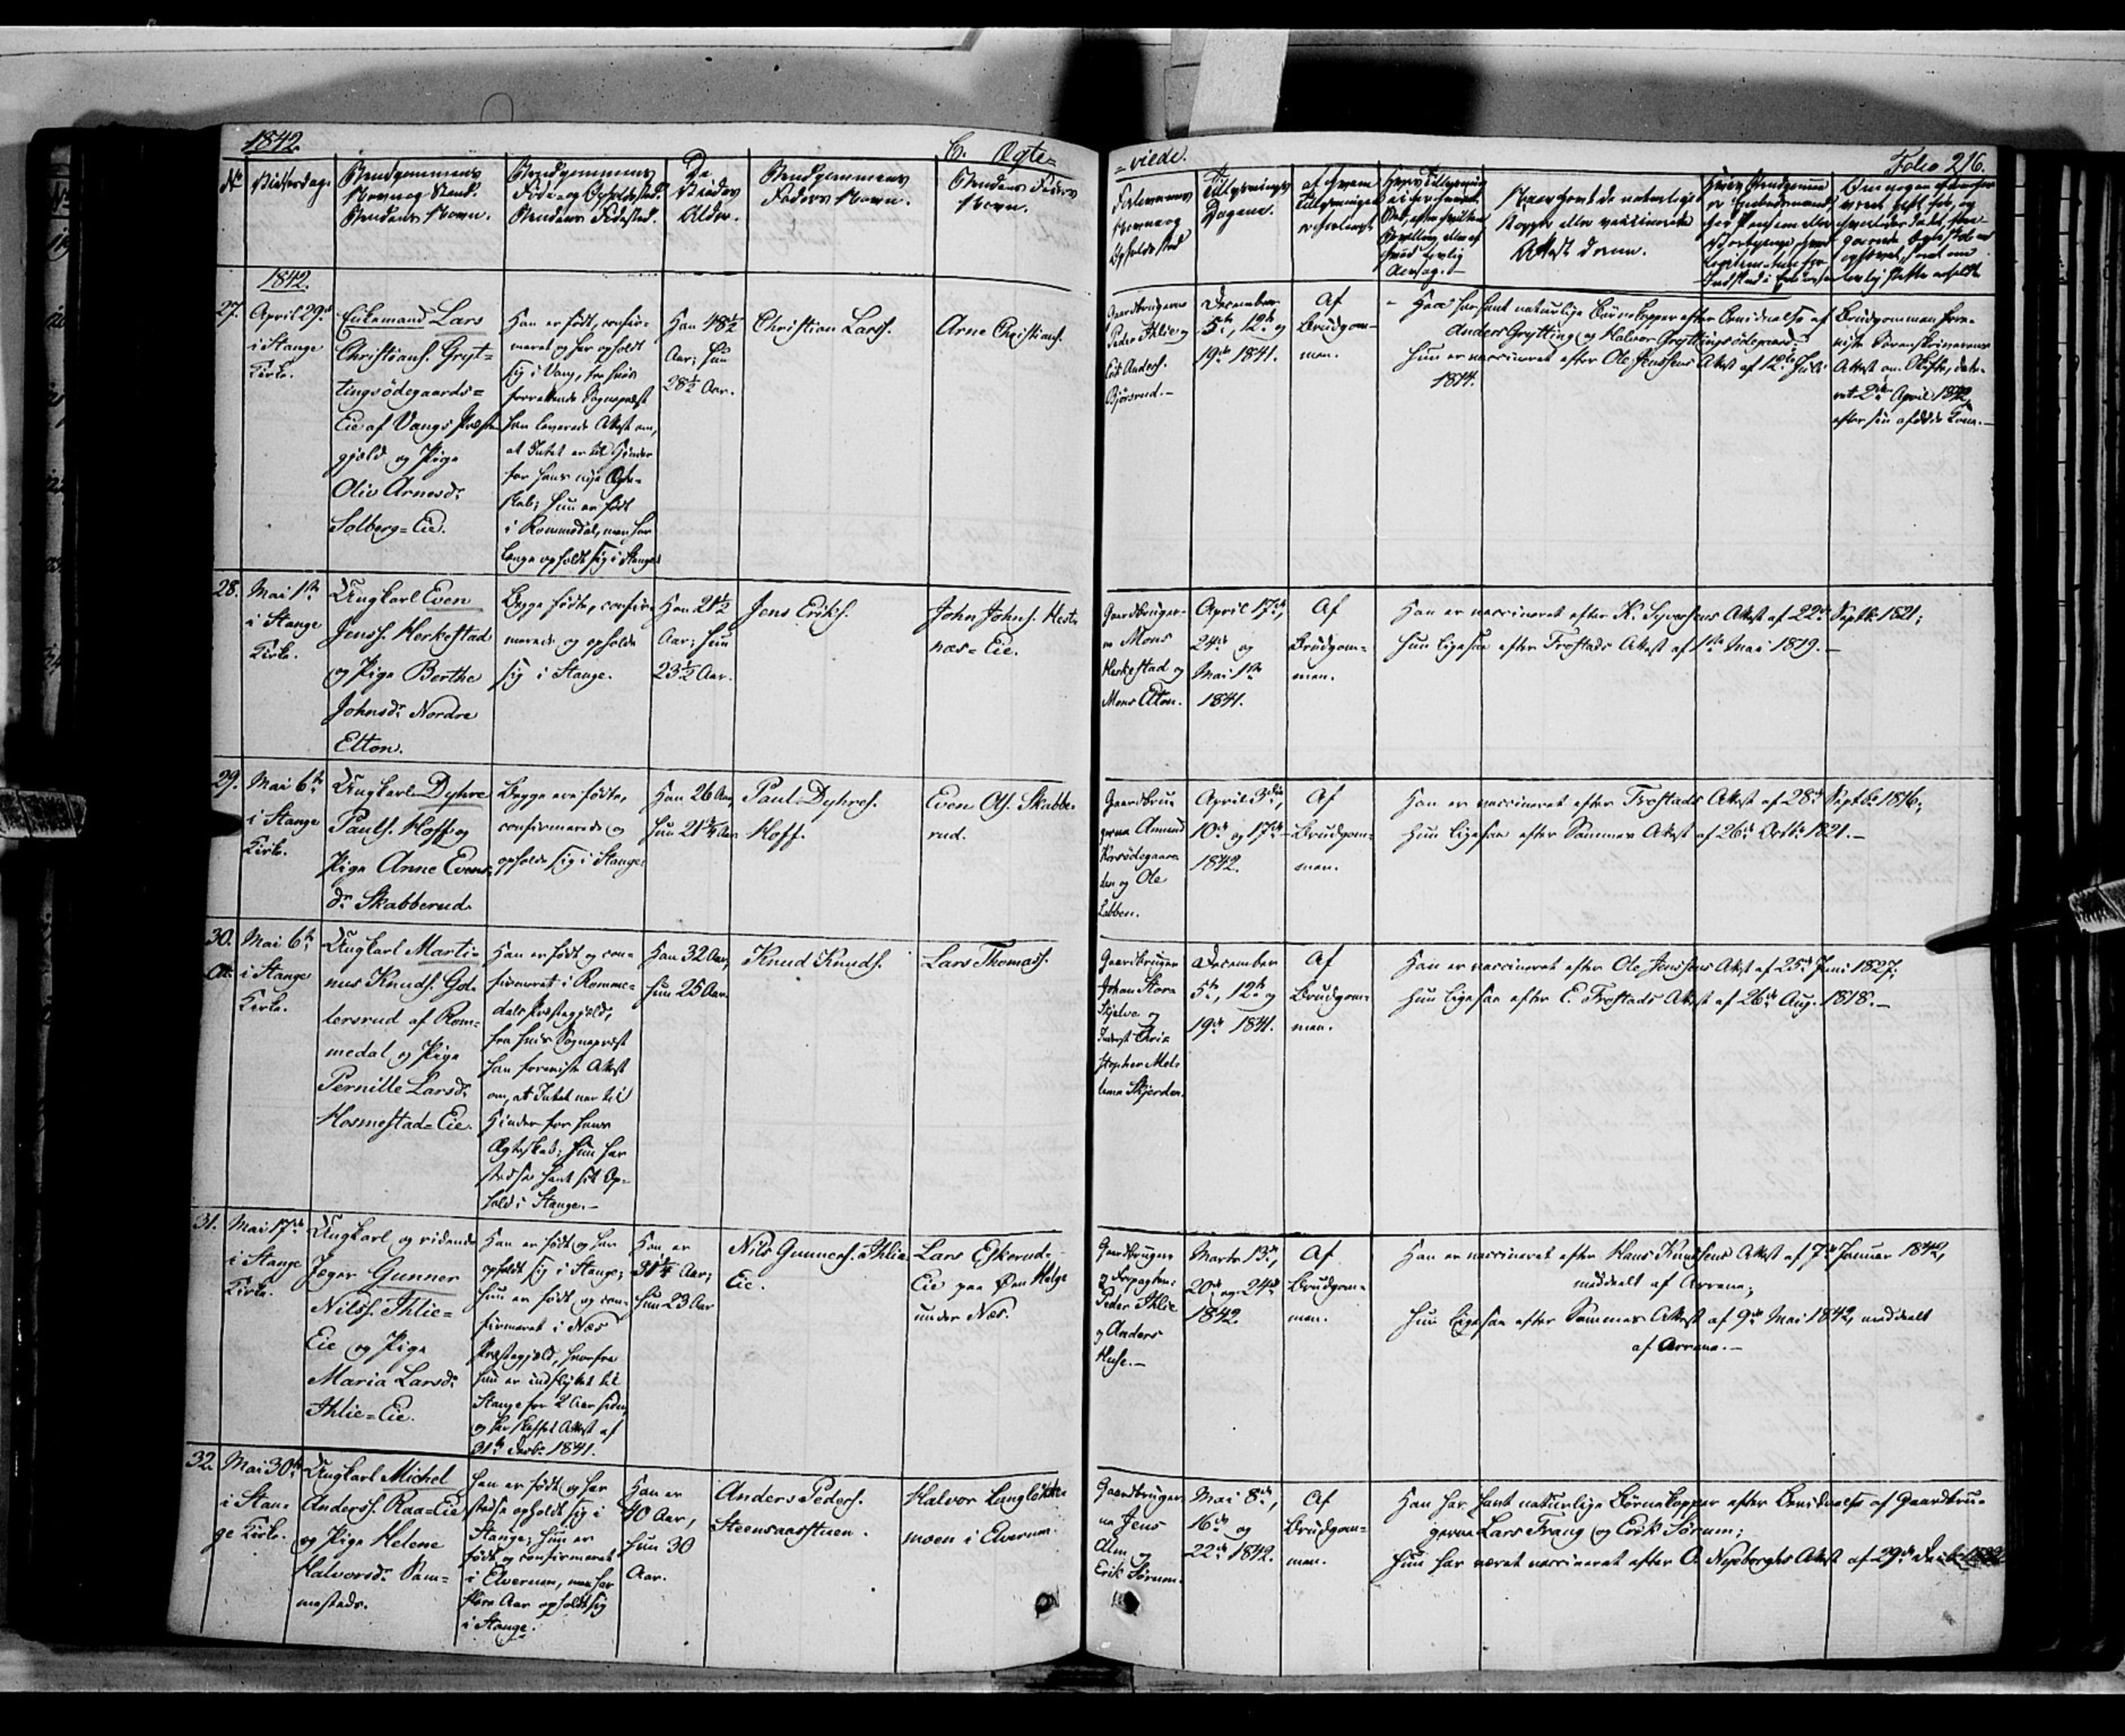 1842.
C. Ægte=
=viede.
Folio 216.
No
Vielsesdag.
Brudgommens
Navn og Stand.
Brudens Navn.
Brudgommens
Føde- og Opholdssted.
Brudens Fødested.
De
Viedes
Alder.
Brudgommens
Faders Navn.
Brudens Faders
Navn.
Forlovernes
Navne og
Opholdssted
Tillysnings
Dagene.
af hvem
Tillysningen
er forlangt
Naar havt de naturlige
Kopper eller vaccinerede
Attest derom.
1842.
27.
April 29de
i Stange
Kirke.
Enkemand Lars
Christians. Gryt=
tingsödegaards=
Eie af Vangs Præste
gjæld og Pige
Oliv Arnesdr
Solberg=Eie.
Han er født, confir=
meret og har opholdt
sig i Vang, fra hvis
forrettende Sognepræst
han leverede Attest om,
at Intet er til Hinder
for hans nye Ægte=
skab; hun er født
i Rommedal, men har
længe opholdt sig i Stange
Han 48½
Aar; hun
28½ Aar.
Christian Larss.
Arne Christians.
Gaardbrugerne
Peder Ihlie og
Erik Anders.
Bjørsrud.-
December
5te, 12te og
19de 1841.
Af
Brudgom=
men.
- Han har havt naturlige Børnekopper efter Bevidnelse af
Anders Grytting og Halvor Gryttingsödegaard;
Hun er vaccineret efter Ole Jenssens Attest af 12te Juli
1814.
Brudgommen fore=
viste Sorenskriverens
Attest om Skifte, date=
ret 2den April 1842,
efter sin afdøde Kone.-
28.
Mai 1ste
i Stange
Kirke.
Ungkarl Even
Jenss. Herkestad
og Pige Berthe
Johnsdr Nordre
Elton.
Begge fødte, confir=
merede og opholde
sig i Stange.
Han 21½
Aar; hun
23½ Aar.
Jens Eriks.
John Johns. Hest=
næs=Eie.
Gaardbruger=
ne Mons
Herkestad og
Mons Elton.
April 17de,
24de og
Mai 1ste
1841.
Af
Brudgom=
men.
Han er vaccineret efter K. Syversens Attest af 22de Septb. 1821;
Hun ligesaa efter Frostads Attest af 1ste Mai 1819.-
29.
Mai 6te
i Stange
Kirke.
Ungkarl Dyhre
Pauls. Hoff og
Pige Anne Evens=
dr Skabberud.
Begge ere fødte,
confirmerede og
opholde sig i Stange
Han 26 Aar,
hun 21¾ Aar
Paul Dyhres.
Hoff.
Even Ols. Skabbe=
rud.
Gaardbru=
gerne Amund
Korsödegaar=
den og Ole
Labben.
April 3die,
10de og 17de
1842.
Af
Brudgom=
men.
Han er vaccineret efter Frostads Attest af 28de Septbr 1816;
Hun ligesaa efter Sammes Attest af 26de Octbr 1821.-
30.
Mai 6te
i Stange
Kirke.
Ungkarl Marti=
nus Knuds. Gol=
lersrud af Rom=
medal og Pige
Pernille Larsdr
Hosmestad=Eie.
Han er født og con=
firmeret i Romme=
dals Præstegjæld,
fra hvis Sognepræst
han foreviste Attest
om, at Intet var til
Hinder for hans
Ægteskab; hun har
stedse havt sit Op=
hold i Stange.-
Han 32 Aar,
hun 25 Aar.
Knud Knuds.
Lars Thomass.
Gaardbruger
Johan Store
Skjelve og
Inderst Chri=
stopher Mel=
lem Skjerden.
December
5te, 12te og
19de 1841.
Af
Brudgom=
men.
Han er vaccineret efter Ole Jenssens Attest af 25de Juni 1827;
Hun ligesaa efter E. Frostads Attest af 26de Aug. 1818.-
31.
Mai 17de
i Stange
Kirke.
Ungkarl og ridende
Jæger Gunner
Nilss. Ihlie=
Eie og Pige
Maria Larsdr
Ihlie=Eie.
Han er født og har
opholdt sig i Stange;
hun er født og con=
firmeret i Næs
Præstegjæld, hvorfra
hun er indflyttet til
Stange for 2 Aar siden,
og har skaffet Attest af
31te Decbr 1841.
Han er
31¼ Aar;
hun 23 Aar
Nils Gunners. Ihlie
Eie.
Lars Eskerud=
Eie paa Øen Helge
under Næs.
Gaardbruger
og Forpagter:
Peder Ihlie
og Anders
Huse.-
Marts 13de,
20de og 24de
1842.
Af
Brudgom=
men.
Han er vaccineret efter Hans Knudsens Attest af 7de Januar 1842,
meddeelt af Arrene;
Hun ligesaa efter Sammes Attest af 9de Mai 1842, meddeelt
af Arrene.-
32.
Mai 30te
i Stan=
ge Kirke.
Ungkarl Michel
Anderss. Raa=Eie
og Pige Helene
Halvorsdr Sam=
mestads.
Han er født og har
stedse opholdt sig i
Stange; hun er
født og confirmeret
i Elverum, men har
flere Aar opholdt sig
i Stange.
Han er
40 Aar,
hun 30
Aar.
Anders Peders.
Steensaasstuen.
Halvor Lunglökke
moen i Elverum.
Gaardbruger=
ne Jens
Alm og
Erik Sørum.
Mai 8de,
16de og
22de 1842.
Af
Brudgom=
men.
Han har havt naturlige Børnekopper efter Bevidnelse af Gaardbru=
gerne Lars Frang og Erik Sørum;
Hun har været vaccineret efter O. Nyeborghs Attest af 29de